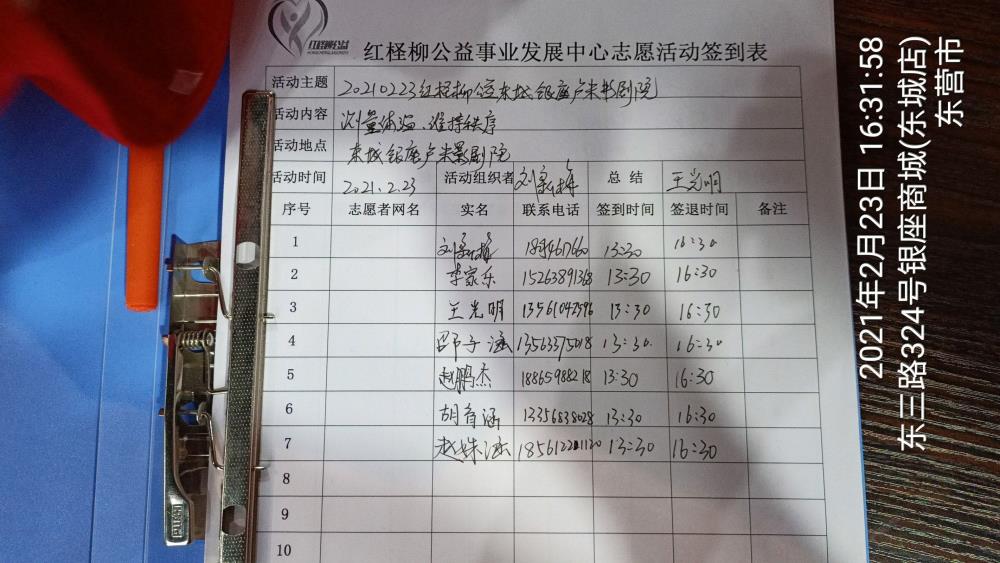 红柽柳公益
红柽柳公益事业发展中心志愿活动签到表
活动主题 20210223红柽柳 东城银座卢米影剧院
活动内容 测量体温、维持秩序
活动地点 东城银座卢米影剧院
活动时间 2021.2.23 活动组织者 刘 总 结 王光明
序号 志愿者网名 实名 联系电话 签到时间 签退时间 备注
1 刘 13:30 16:30
2 李家乐 15263891368 13:30 16:30
3 王光明 13561042596 13:30 16:30
4 邵子涵 13563375018 13:30 16:30
5 赵鹏杰 18865988218 13:30 16:30
6 胡育涵 13356838028 13:30 16:30
7 赵姝涵 13:30 16:30
8
9
10
2021年2月23日 16:31:58
东三路324号银座商城(东城店)
东营市